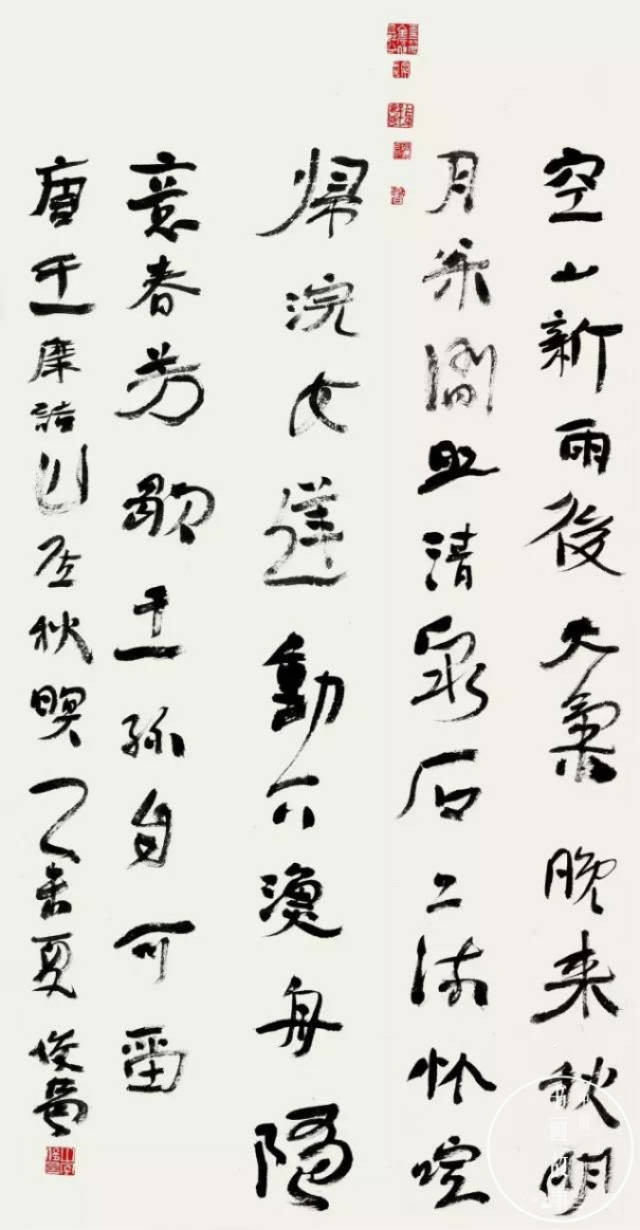 空山新雨後天氣晚来秋明
月枀間照清泉石上流竹喧
歸浣女蓮動下漁舟隨
意春芳歇王孫自可留
唐王摩詰山居秋暝乙未夏俊